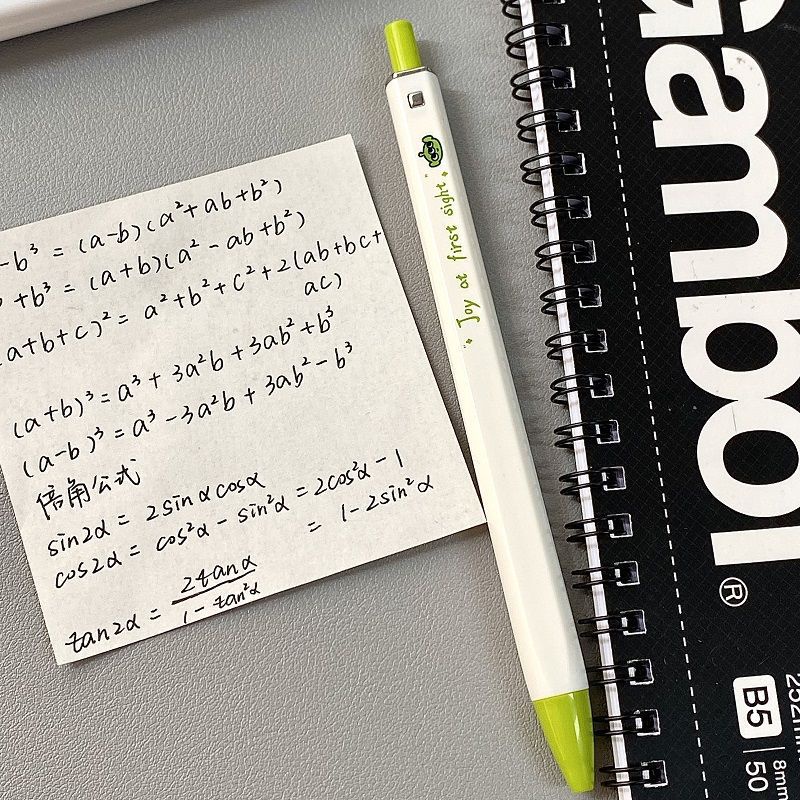 -b³ = (a-b)(a²+ab+b²)
³+b³ = (a+b)(a²-ab+b²)
(a+b+c)² = a²+b²+c²+2(ab+bc+
ac)
(a+b)³ = a³+3a²b+3ab²+b³
(a-b)³ = a³-3a²b+3ab²-b³
倍角公式
sin2α = 2sinαcosα
cos2α = cos²α-sin²α = 2cos²α-1
= 1-2sin²α
tan2α = 2tanα
1-tan²α
"Joy at first sight"
Gambol®
B5
50
252mm
8mm